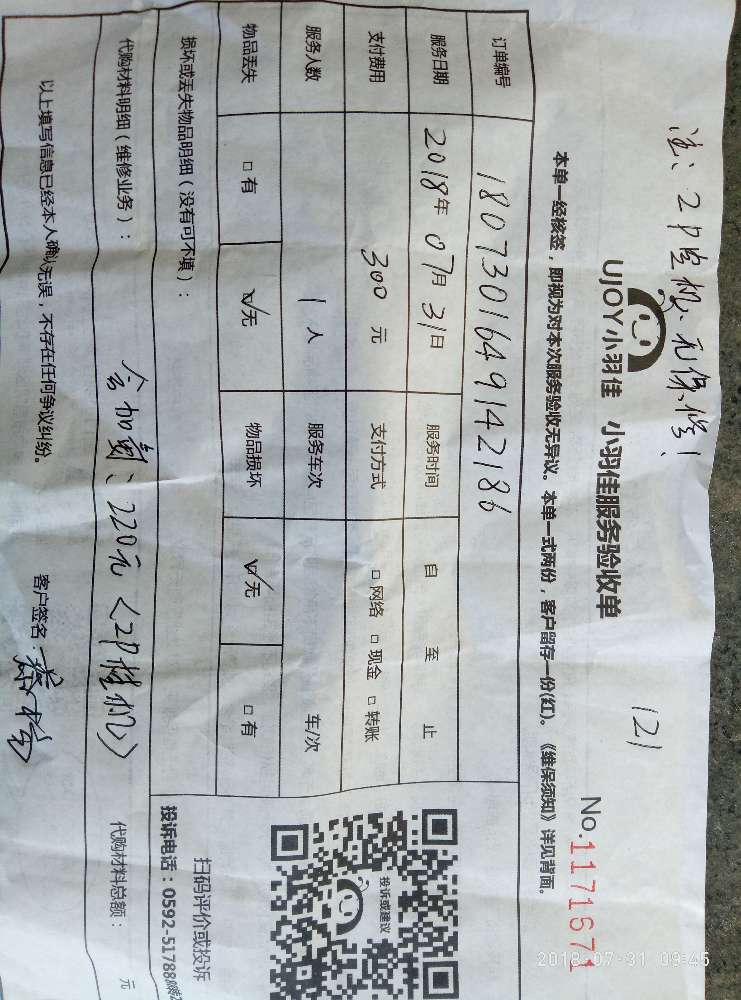 注：2P挂机、无保修！
121
UJOY小羽佳 小羽佳服务验收单
No.1171671
本单一经核签，即视为对本次服务验收无异议。本单一式两份，客户留存一份(红)。《维保须知》详见背面。
订单编号 1807301649142186
服务日期 2018年07月31日 服务时间 自 至 止
支付费用 300元 支付方式 □网络 □现金 □转账
服务人数 1人 服务车次 车/次
物品丢失 □有 ☑无 物品损坏 ☑无 □有
损坏或丢失物品明细（没有可不填）：
代购材料明细（维修业务）： 含加氟：220元<2P挂机> 代购材料总额： 元
以上填写信息已经本人确认无误，不存在任何争议纠纷。 客户签名：
投诉或建议
扫码评价或投诉
投诉电话：0592-51788
2018-07-31 09:45